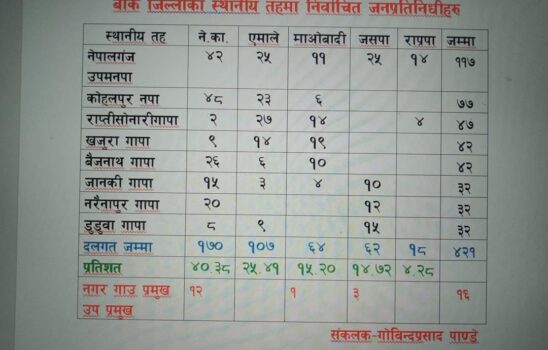 बाँके जिल्लाका स्थानीय तहमा निर्वाचित जनप्रतिनिधीहरु
स्थानीय तह ने.का. एमाले माओबादी जसपा राप्रपा जम्मा
नेपालगंज ४२ २५ ११ २५ १४ ११७
उपमनपा
कोहलपुर नपा ४८ २३ ६ ७७
राप्तीसोनारीगापा २ २७ १४ ४ ४७
खजुरा गापा ९ १४ १९ ४२
बैजनाथ गापा २६ ६ १० ४२
जानकी गापा १५ ३ ४ १० ३२
नरैनापुर गापा २० १२ ३२
डुडुवा गापा ८ ९ १५ ३२
दलगत जम्मा १७० १०७ ६४ ६२ १८ ४२१
प्रतिशत ४०.३८ २५.४१ १५.२० १४.७२ ४.२८
नगर गाउ प्रमुख १२ १ ३ १६
उप प्रमुख
संकलक-गोविन्दप्रसाद पाण्डे